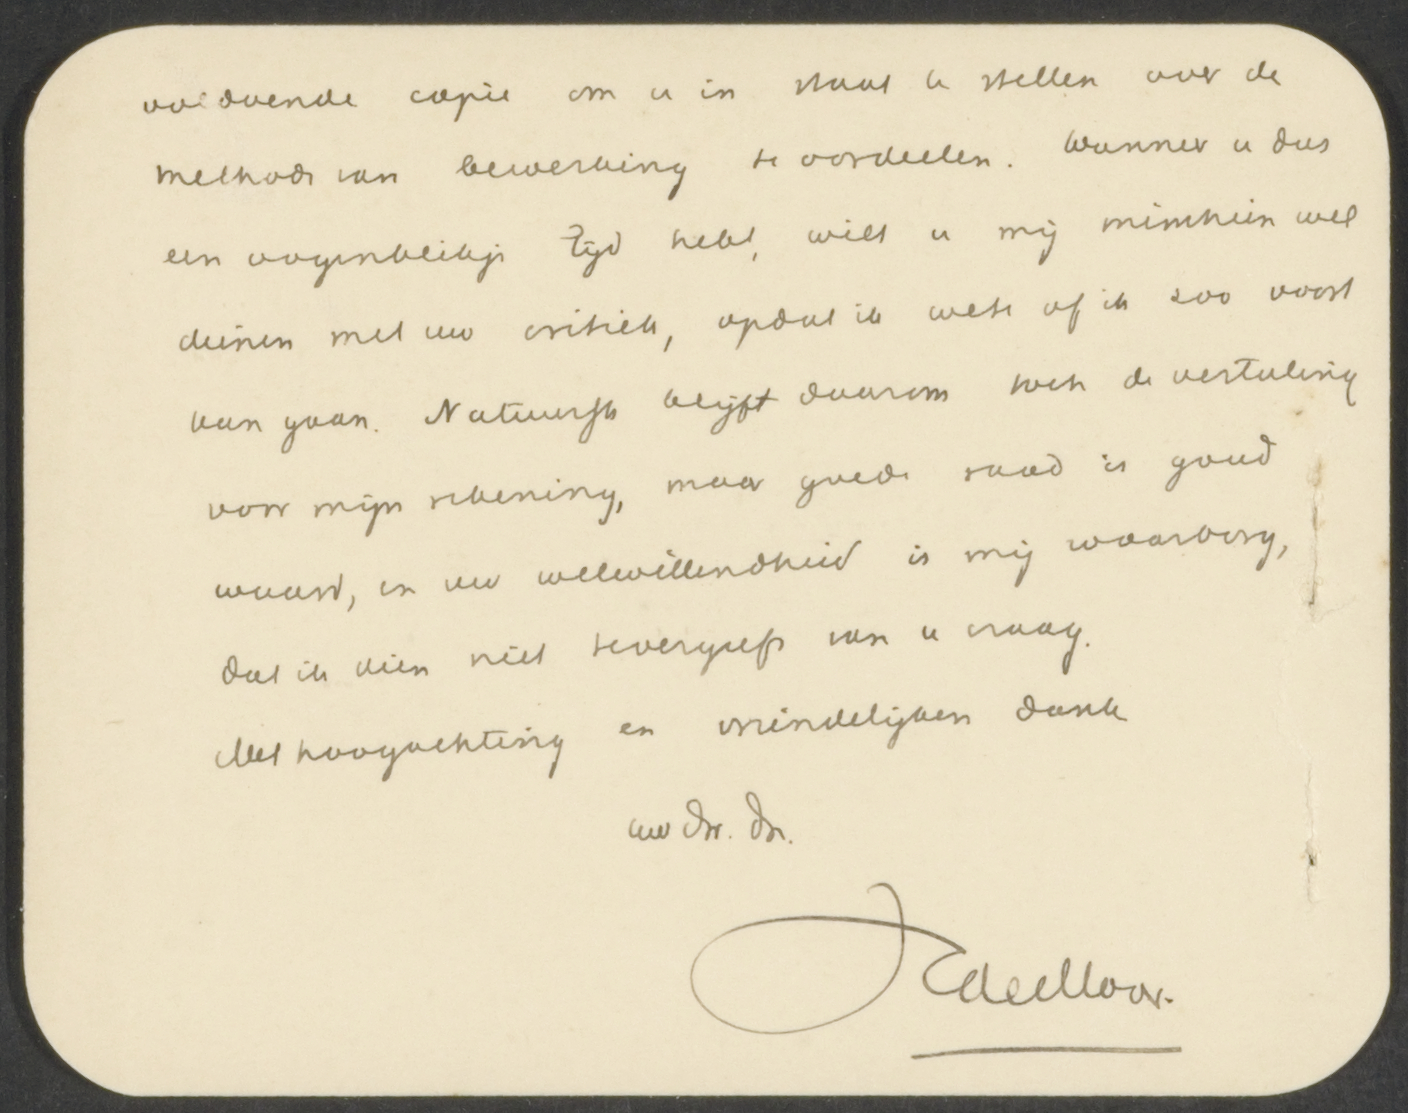 voldoende copie om u in staat te stellen over de
methode van bewerking te oordeelen. Wanneer u dus
een oogenblikje tijd hebt, wilt u mij misschien wel
dienen met uw critiek, opdat ik wete of ik zoo voort
kan gaan. Natuurlijk blijft daarom toch de vertaling
voor mijn rekening, maar goede raad is goud
waard, en uw welwillendheid is mij waarborg,
dat ik dien niet tevergeefs van u vraag.
Met hoogachting en vriendelijken dank
uw dw. dr.
JC de Moor.